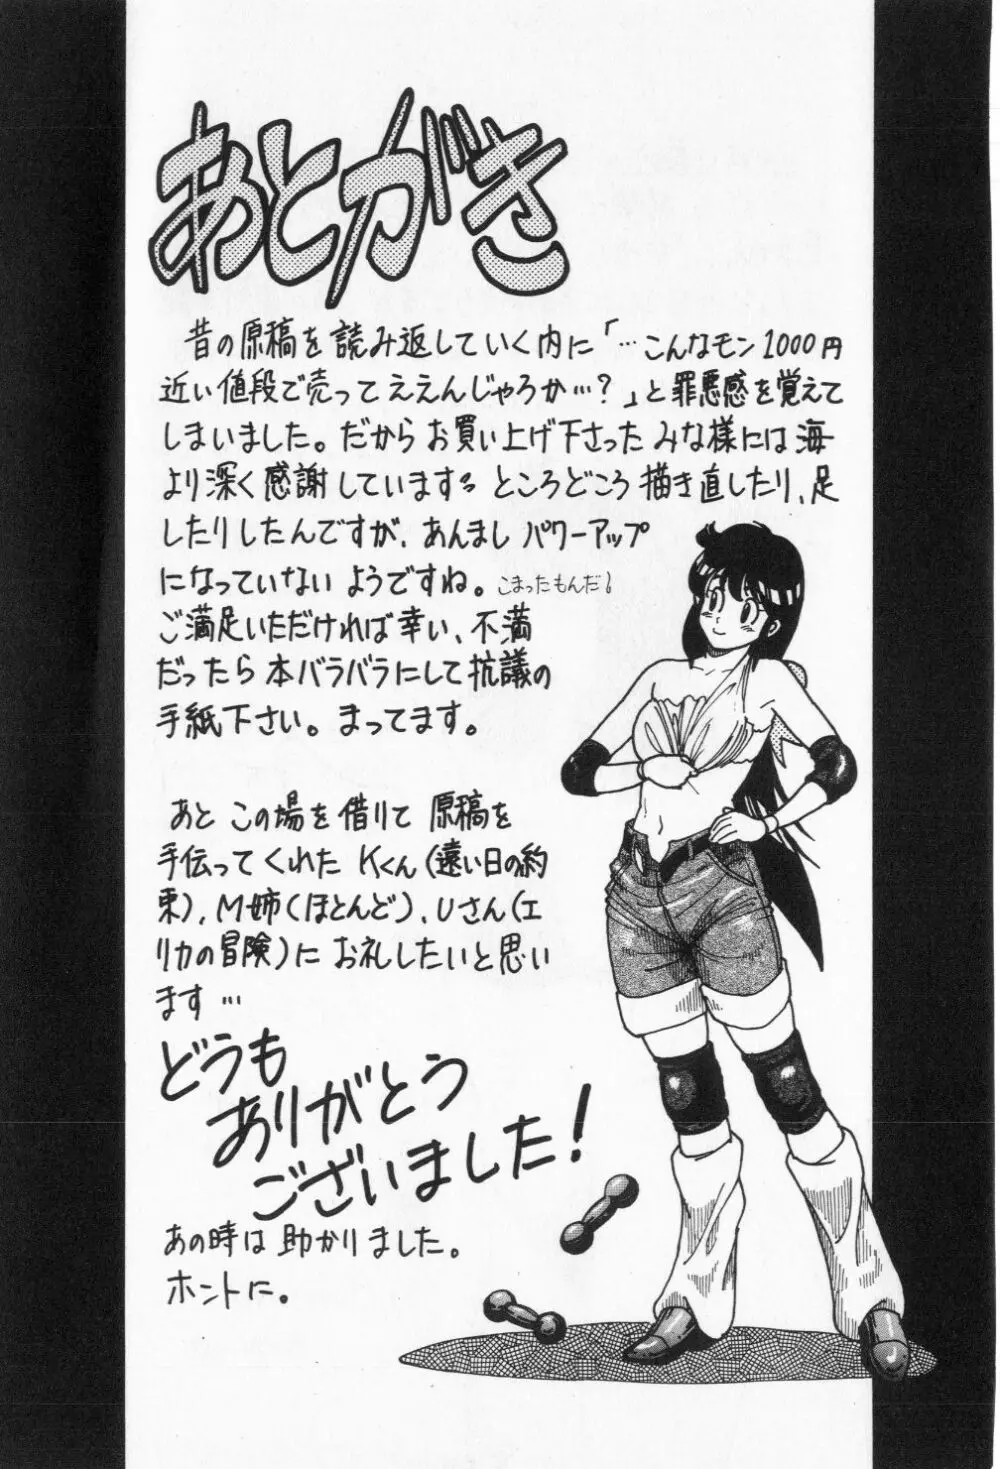 あとがき
昔の原稿を読み返していく内に「…こんなモン1000円
近い値段で売ってええんじゃろか…？」と罪悪感を覚えて
しまいました。だからお買い上げ下さったみな様には海
より深く感謝しています。ところどころ描き直したり、足
したりしたんですが、あんまし パワーアップ
になっていないようですね。こまったもんだ！
ご満足いただければ幸い、不満
だったら本バラバラにして抗議の
手紙下さい。まってます。
あと この場を借りて 原稿を
手伝ってくれた Kくん（遠い日の約
束）、M姉（ほとんど）、Uさん（エ
リカの冒険）に お礼したいと思い
ます…
どうも
ありがとう
ございました！
あの時は 助かりました。
ホントに。